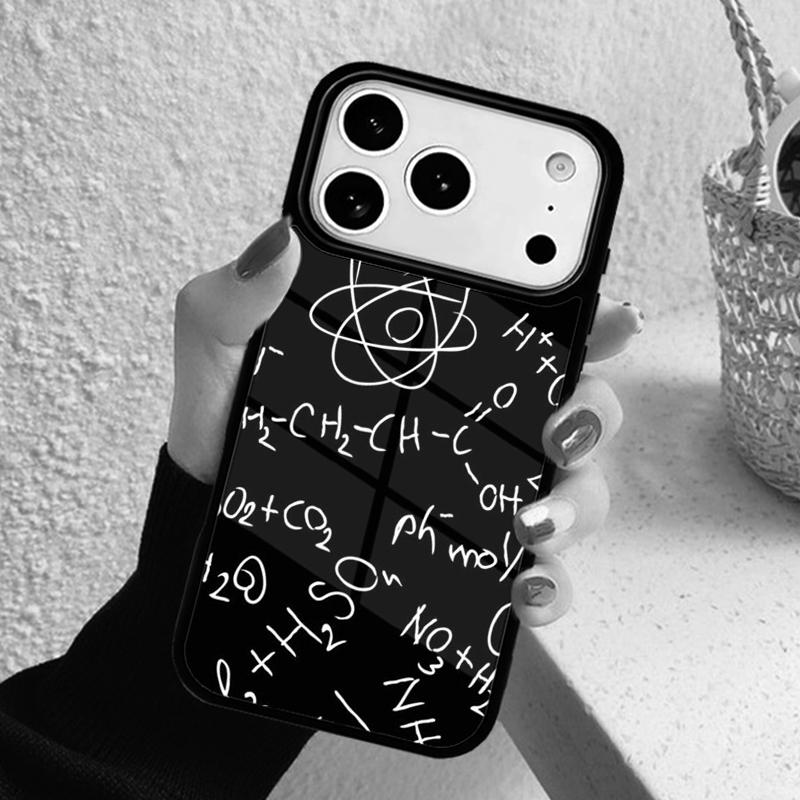 H+
+
O
H2-CH2-CH-C
OH
O2+CO2
ph- mol/
H2O
+H2SO4
NO3+H2
NH